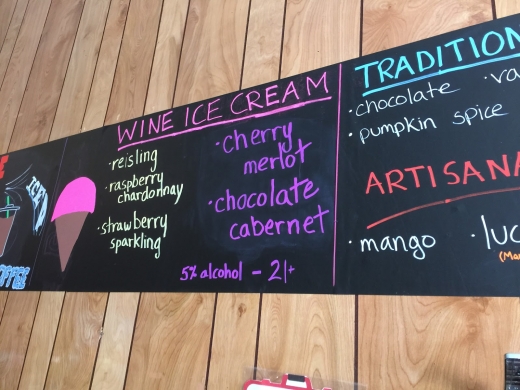 WINE ICE CREAM
·reisling
·raspberry
chardonnay
·strawberry
sparkling
·cherry
merlot
·chocolate
cabernet
5% alcohol - 21+
TRADITION
·chocolate
·va
·pumpkin spice
ARTISANA
·mango
·luc